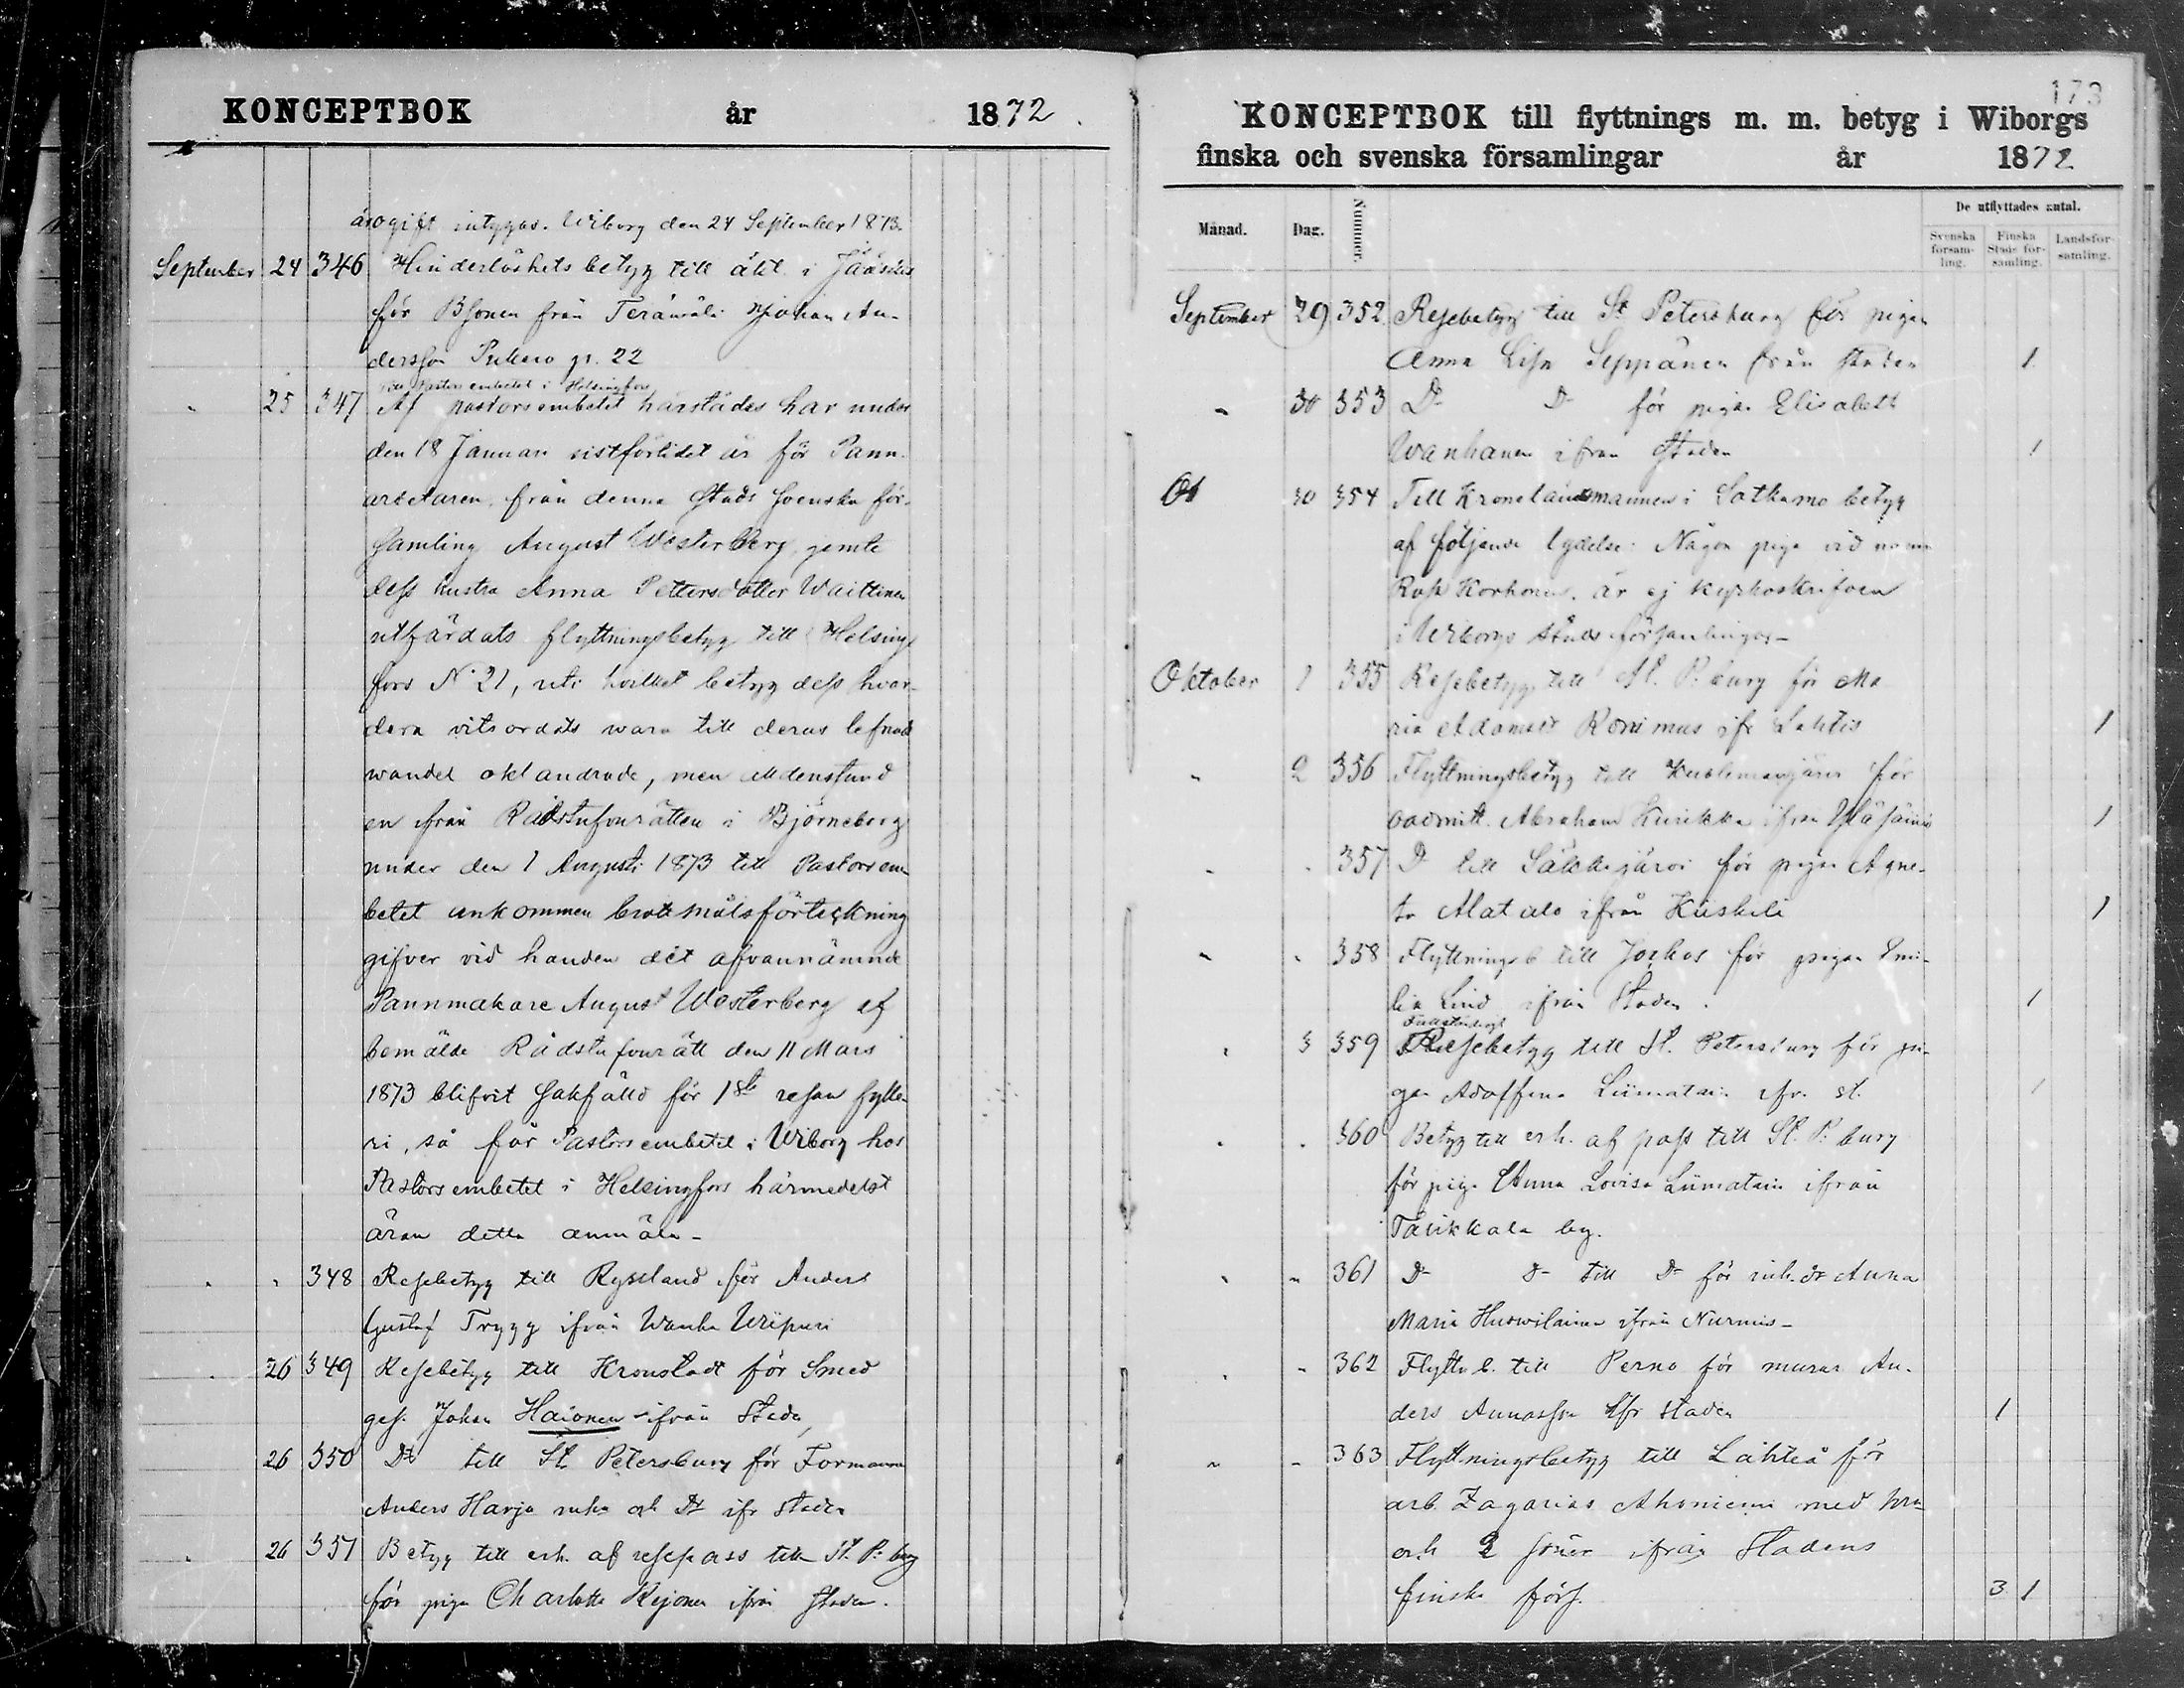 KONCEPTBOK år 1872.
ärogift intygas. Wiborg den 24 September 1873.
September 24 346 Hinderlöshets betyg till äkt. i Jääskis
för Bsonen från Terämäli Johan An-
dersson Pukero gr. 22
Till Pastorsembetet i Helsingfors
" 25 347 Af pastorsembetet härstädes har under
den 18 Januari sistförlidet år för Pann-
arbetaren från denna Stads Svenska för-
samling August Westerberg, jemte
dess hustru Anna Pettersdotter Waittinen
utfärdats flyttningsbetyg till Helsing-
fors N:o 21, uti hvilket betyg dess hvar-
dera vitsordats wara till deras lefnads
wandel oklandrade, men alldenstund
en ifrån Rådstufvurätten i Björneborg
under den 1 Augusti 1873 till Pastorsem-
betet ankommen brottmålsförteckning
gifver vid handen det ofvannämnde
Pannmakare August Westerberg af
bemälde Rådstufvurätt den 11 Mars
1873 blifvit sakfälld för 1sta resan fylle-
ri, så får Pastorsembetet i Wiborg hos
Pastorsembetet i Helsingfors härmedelst
äran detta anmäla-
" " 348 Resebetyg till Ryssland för Anders
Gustaf Trygg ifrån Wanha Wiipuri
" 26 349 Resebetyg till Kronstadt för Smed
ges. Johan Haionen ifrån Staden,
26 350 Do till St. Petersburg för Formann
Anders Harja och Dr ifr staden
" 26 351 Betyg till erh. af resepass till St. P:burg
för piga Charlotta Reijonen ifrån staden.
173
KONCEPTBOK till flyttnings m. m. betyg i Wiborgs
finska och svenska församlingar år 1872
Månad. Dag. Nummer. De utflyttades antal.
Svenska försam-ling. Finska Stads för-samling. Landsför-samling.
September 29 352 Resebetyg till St. Petersburg för pigan
Anna Lisa Seppänen från staden 1
" 30 353 Do Do för pigan Elisabeth
Wanhanen ifrån Staden 1
Ot 30 354 Till Kronelänsmannen i Sotkamo betyg
af följande lydelse: Någon piga vid namn
Rosa Korhonen, är ej kyrkoskrifven
i Wiborgs stads församlingar-
Oktober 1 355 Resebetyg till St. P:burg för Ma
ria Adamsdr Ronimus ifr Lahtis 1
" 2 356 Flyttningsbetyg till för
badmitt. Abraham Kurikka ifrån 1
" " 357 Do till Säkkijärvi för pigan Agne-
ta Alatalo ifrån Kiiskilä 1
" " 358 Flyttningsb till Jockas för pigan Emi-
lia Lind ifrån Staden. 1
Fullständigt
" 3 359 Resebetyg till St. Petersburg för pi-
gan Adolfina Liimatain ifr. st. 1
" " 360 Betyg till erh. af pass till St. P:burg
för piga Anna Lovisa Liimatain ifrån
Tarikkala by.
" " 361 Do Do till Do för inh. dr Anna
Maria Huowilainen ifrån Nurmis-
" " 362 Flyttn b. till Perno för murar An-
ders Annasson ifr staden 1
" " 363 Flyttningsbetyg till Lahteå för
arb. Zagarias Ahoniemi med hru
och 2 söner ifrån Stadens
finska förs. 3 1